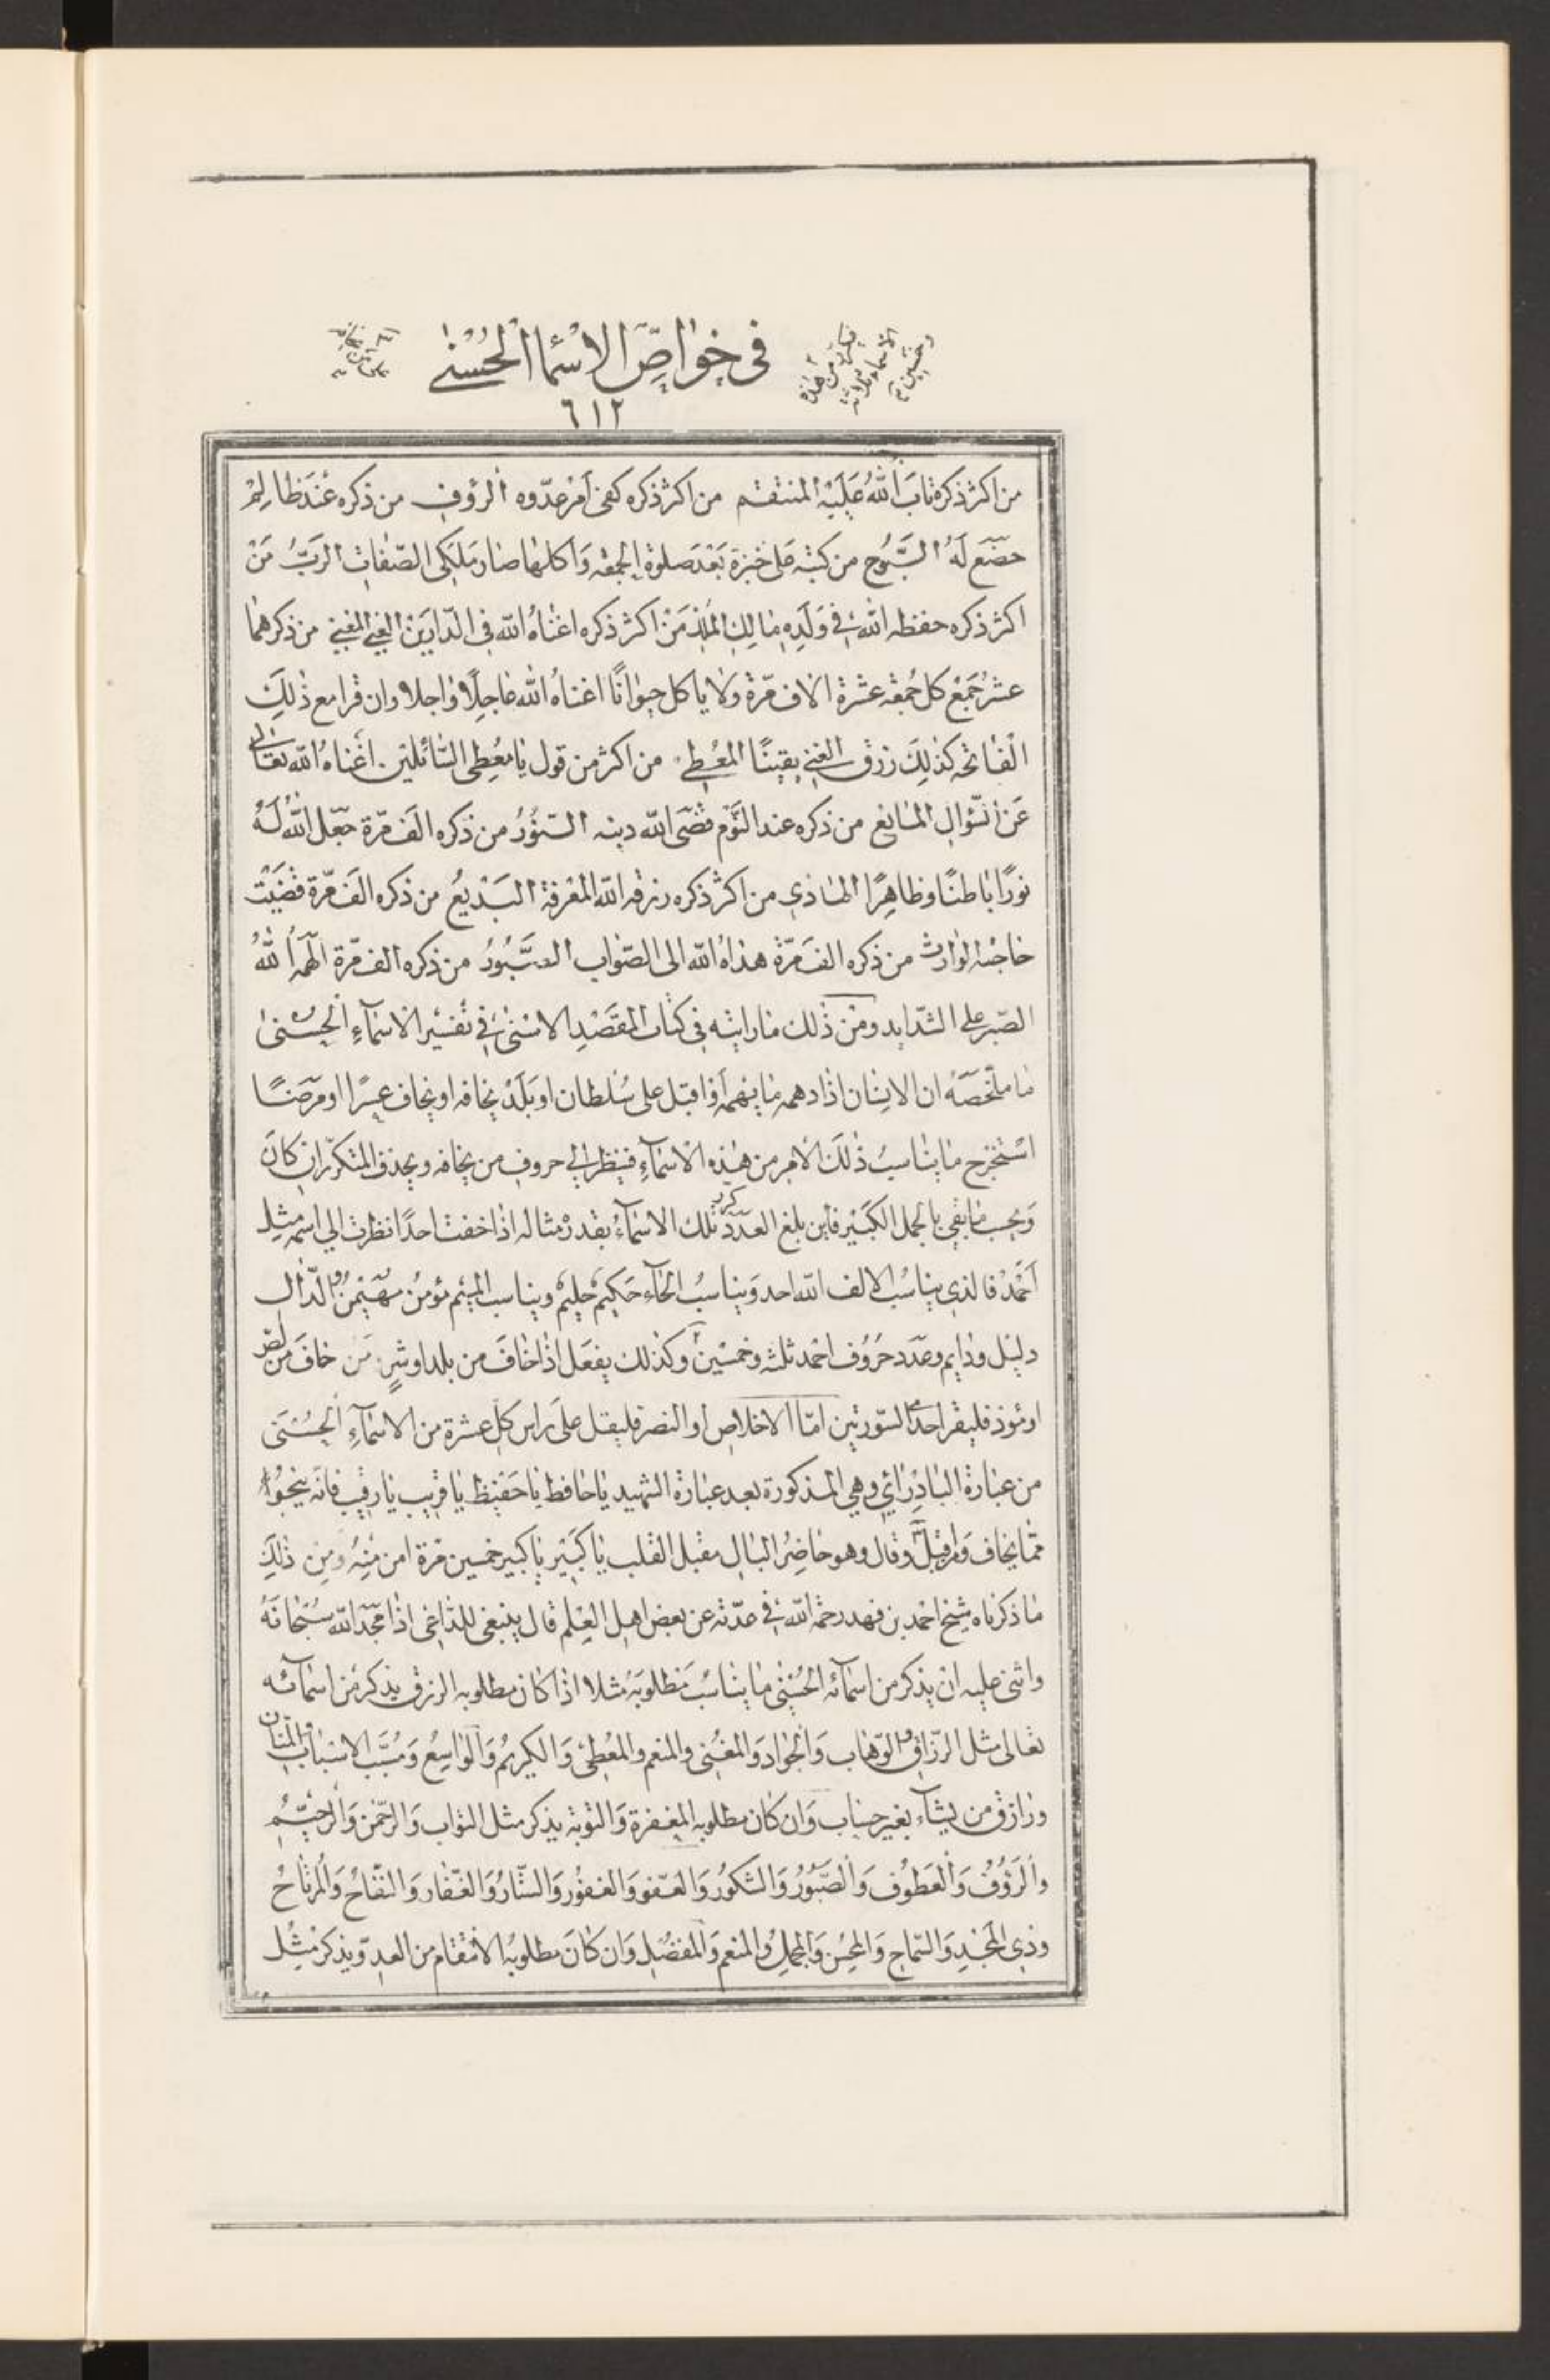 فى خواص الاسماء الحسنى
٦١٢
فيكرر من هذه
الاسماء ثلاثة
وخمسين
من اكثر ذكره تاب الله عليه المنتقم من اكثر ذكره كفى امر عدوه الرؤف من ذكره عند ظالم
خضع له السبوح من كتبه على خبزة بعد صلوة الجمعه واكلها صار ملكى الصفات الرب من
اكثر ذكره حفظه الله فى ولده مالك الملك من اكثر ذكره اغناه الله فى الدارين الغنى المغنى من ذكرهما
عشر جمع كل جمعه عشرة الاف مرة ولا ياكل حيوانا اغناه الله عاجلا واجلا وان قرا مع ذلك
الفاتحه كذلك رزق الغنى يقينا المعطى من اكثر من قول يا معطى السائلين اغناه الله تعالى
عن السؤال المانع من ذكره عند النوم قضى الله دينه النور من ذكره الف مرة جعل الله له
نورا باطنا وظاهرا الهادى من اكثر ذكره رزقه الله المعرفة البديع من ذكره الف مرة قضيت
حاجته الوارث من ذكره الف مرة هداه الله الى الصواب الصبور من ذكره الف مرة الهمه الله
الصبر على الشدايد ومن ذلك ما رايته فى كتاب المقصد الاسنى فى تفسير الاسماء الحسنى
ما ملخصه ان الانسان اذا دهمه ما يهمه او اقبل على سلطان او بلد يخافه او يخاف عسرا او مرضا
استخرج ما يناسب ذلك الامر من هذه الاسماء فينظر الى حروف من يخافه ويحذف المتكرر ان كان
ويحسب ما بقى بالجمل الكبير فاين بلغ العدد كرر تلك الاسماء بقدر مثاله اذا خفت احدا نظرت الى اسمه مثل
احمد فالذى يناسب الالف الله احد ويناسب الحاء حكيم حليم ويناسب الميم مؤمن مهيمن والدال
دليل ودايم وعدد حروف احمد ثلثه وخمسين وكذلك يفعل اذا خاف من بلد او شر من خاف من لص
او مؤذ فليقرا احد السورتين اما الاخلاص او النصر فليقل على راس كل عشرة من الاسماء الحسنى
من عبارة البادرائى وهى المذكورة بعد عبارة الشهيد يا حافظ يا حفيظ يا قريب يا رقيب فانه ينجو
مما يخاف وقال وهو حاضر البال مقبل القلب يا كبير يا كبير خمسين مرة امن منه ومن ذلك
ما ذكرناه شيخ احمد بن فهد رحمه الله فى عدته عن بعض اهل العلم قال ينبغى للداعى اذا مجد الله سبحانه
واثنى عليه ان يذكر من اسمائه الحسنى ما يناسب مطلوبه مثلا اذا كان مطلوبه الرزق يذكر من اسمائه
تعالى مثل الرزاق والوهاب والجواد والمغنى والمنعم والمعطى والكريم والواسع ومسبب الاسباب والمنان
ورازق من يشاء بغير حساب وان كان مطلوبه المغفرة والتوبة يذكر مثل التواب والرحمن والرحيم
والرؤف والعطوف والصبور والشكور والعفو والغفور والستار والغفار والنفاح والمرتاح
وذى المجد والسماح والمحسن والمجمل والمنعم والمفضل وان كان مطلوبه الانتقام من العدو يذكر مثل